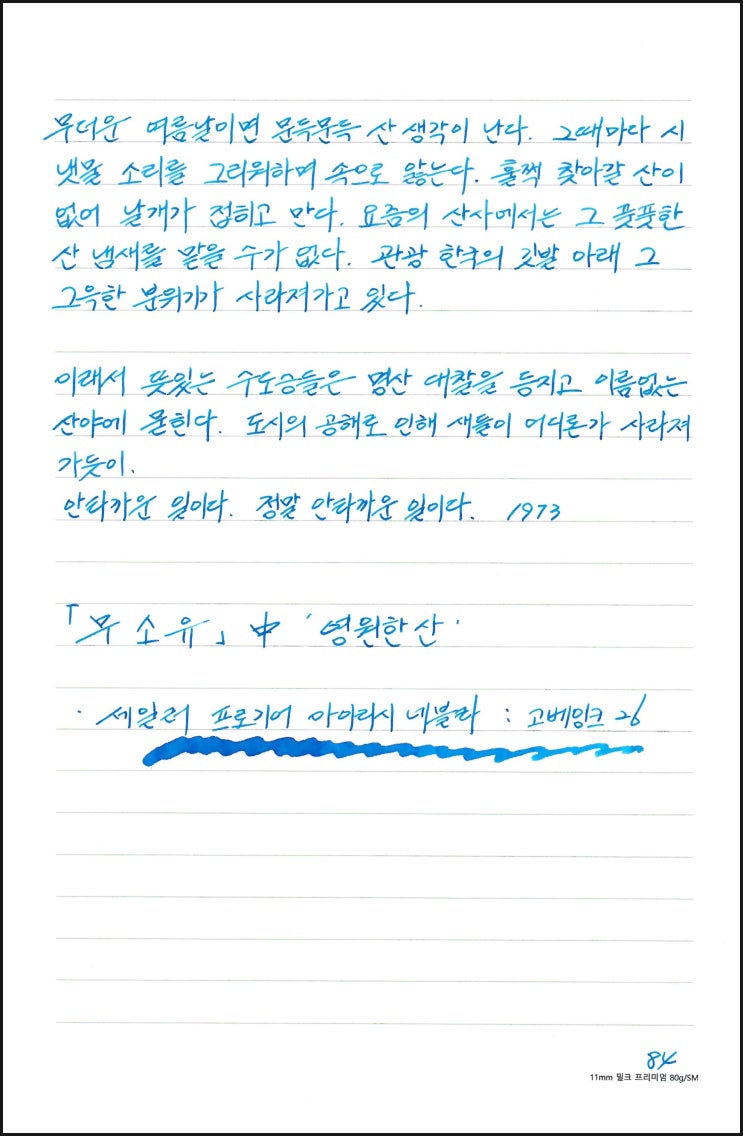 무더운 여름날이면 문득문득 산 생각이 난다. 그때마다 시
냇물 소리를 그리워하며 속으로 앓는다. 훌쩍 찾아갈 산이
없어 날개가 접히고 만다. 요즘의 산사에서는 그 풋풋한
산 냄새를 맡을 수가 없다. 관광 한국의 깃발 아래 그
그윽한 분위기가 사라져가고 있다.
이래서 뜻있는 수도승들은 명산 대찰을 등지고 이름없는
산야에 묻힌다. 도시의 공해로 인해 새들이 어디론가 사라져
가듯이.
안타까운 일이다. 정말 안타까운 일이다. 1973
「무소유」中 '영원한 산'
· 세일러 프로기어 아이리시 네뷸라 : 고베잉크 26
84
11mm 밀크 프리미엄 80g/SM